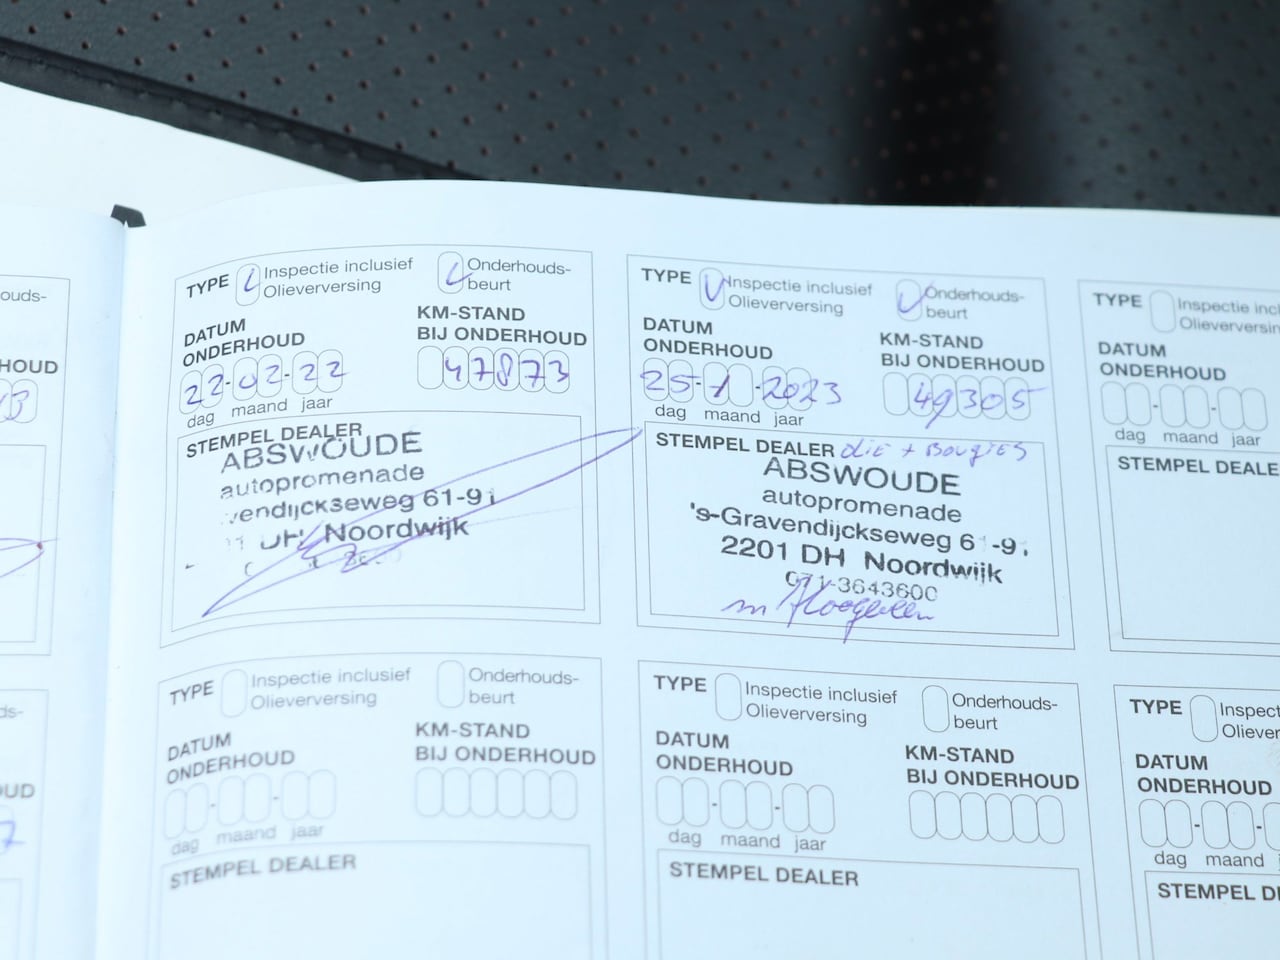 TYPE Inspectie inclusief Olieverversing Onderhouds-beurt
DATUM ONDERHOUD
KM-STAND BIJ ONDERHOUD
22-02-22
47873
dag maand jaar
STEMPEL DEALER
ABSWOUDE
autopromenade
vendijckseweg 61-91
DH Noordwijk
TYPE Inspectie inclusief Olieverversing Onderhouds-beurt
DATUM ONDERHOUD
KM-STAND BIJ ONDERHOUD
25-1-2023
49305
dag maand jaar
STEMPEL DEALER olie + Bougies
ABSWOUDE
autopromenade
's-Gravendijckseweg 6 -9
2201 DH Noordwijk
071-3643600
TYPE Inspectie inclusief Olieverversing
DATUM ONDERHOUD
dag maand jaar
STEMPEL DEALE
TYPE Inspectie inclusief Olieverversing Onderhouds-beurt
DATUM ONDERHOUD
KM-STAND BIJ ONDERHOUD
dag maand jaar
STEMPEL DEALER
TYPE Inspectie inclusief Olieverversing Onderhouds-beurt
DATUM ONDERHOUD
KM-STAND BIJ ONDERHOUD
dag maand jaar
STEMPEL DEALER
TYPE Inspect Oliever
DATUM ONDERHOUD
dag maand
STEMPEL DE
ouds-
HOUD
ds-
OUD